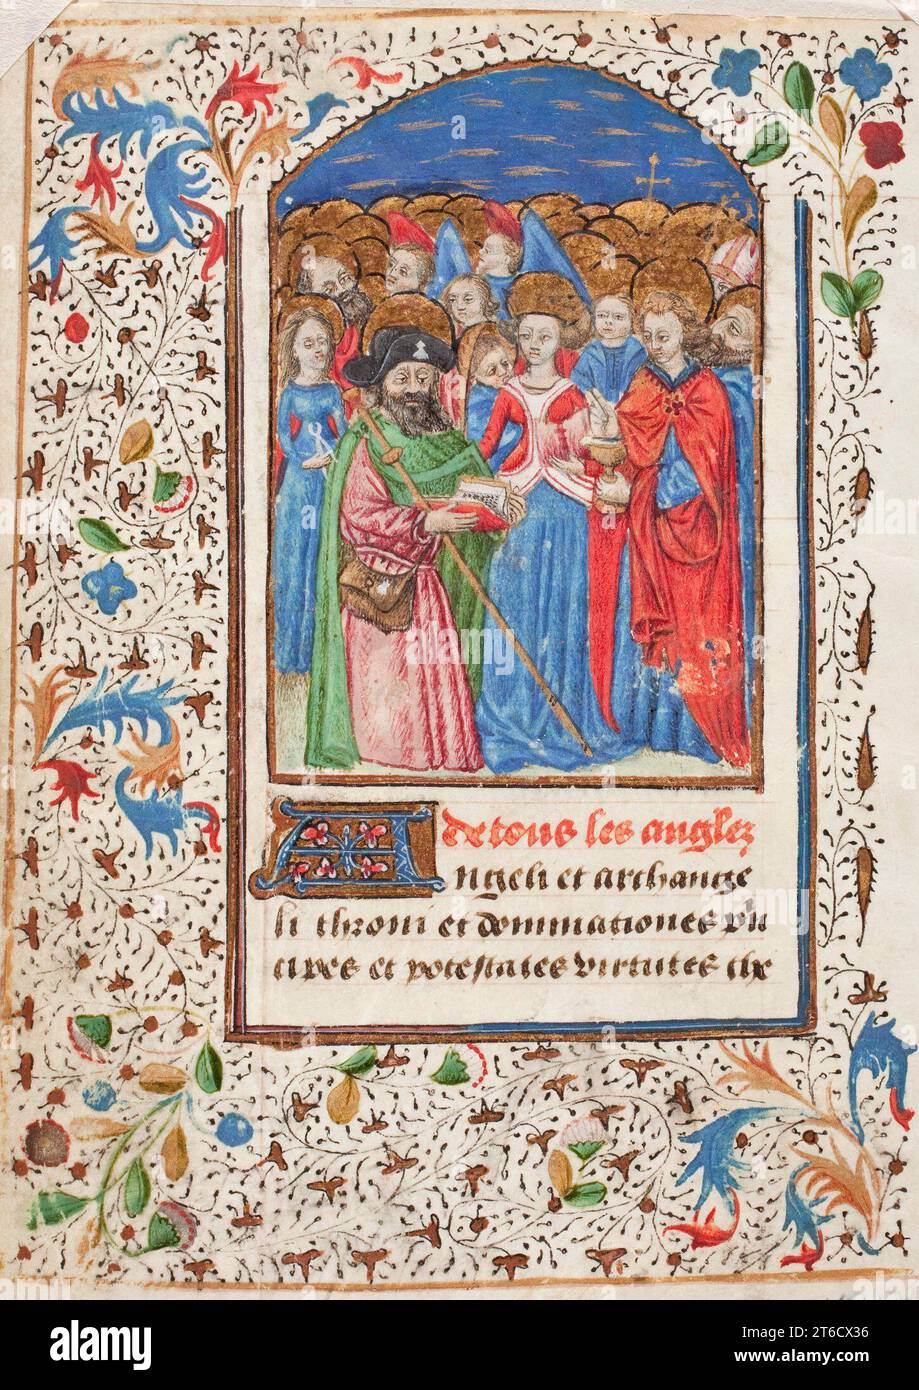 de tous les anglez
Angeli et archange
li throni et dominationes prin
cipes et potestates virtutes the
alamy
Image ID: 2T6CX36
www.alamy.com